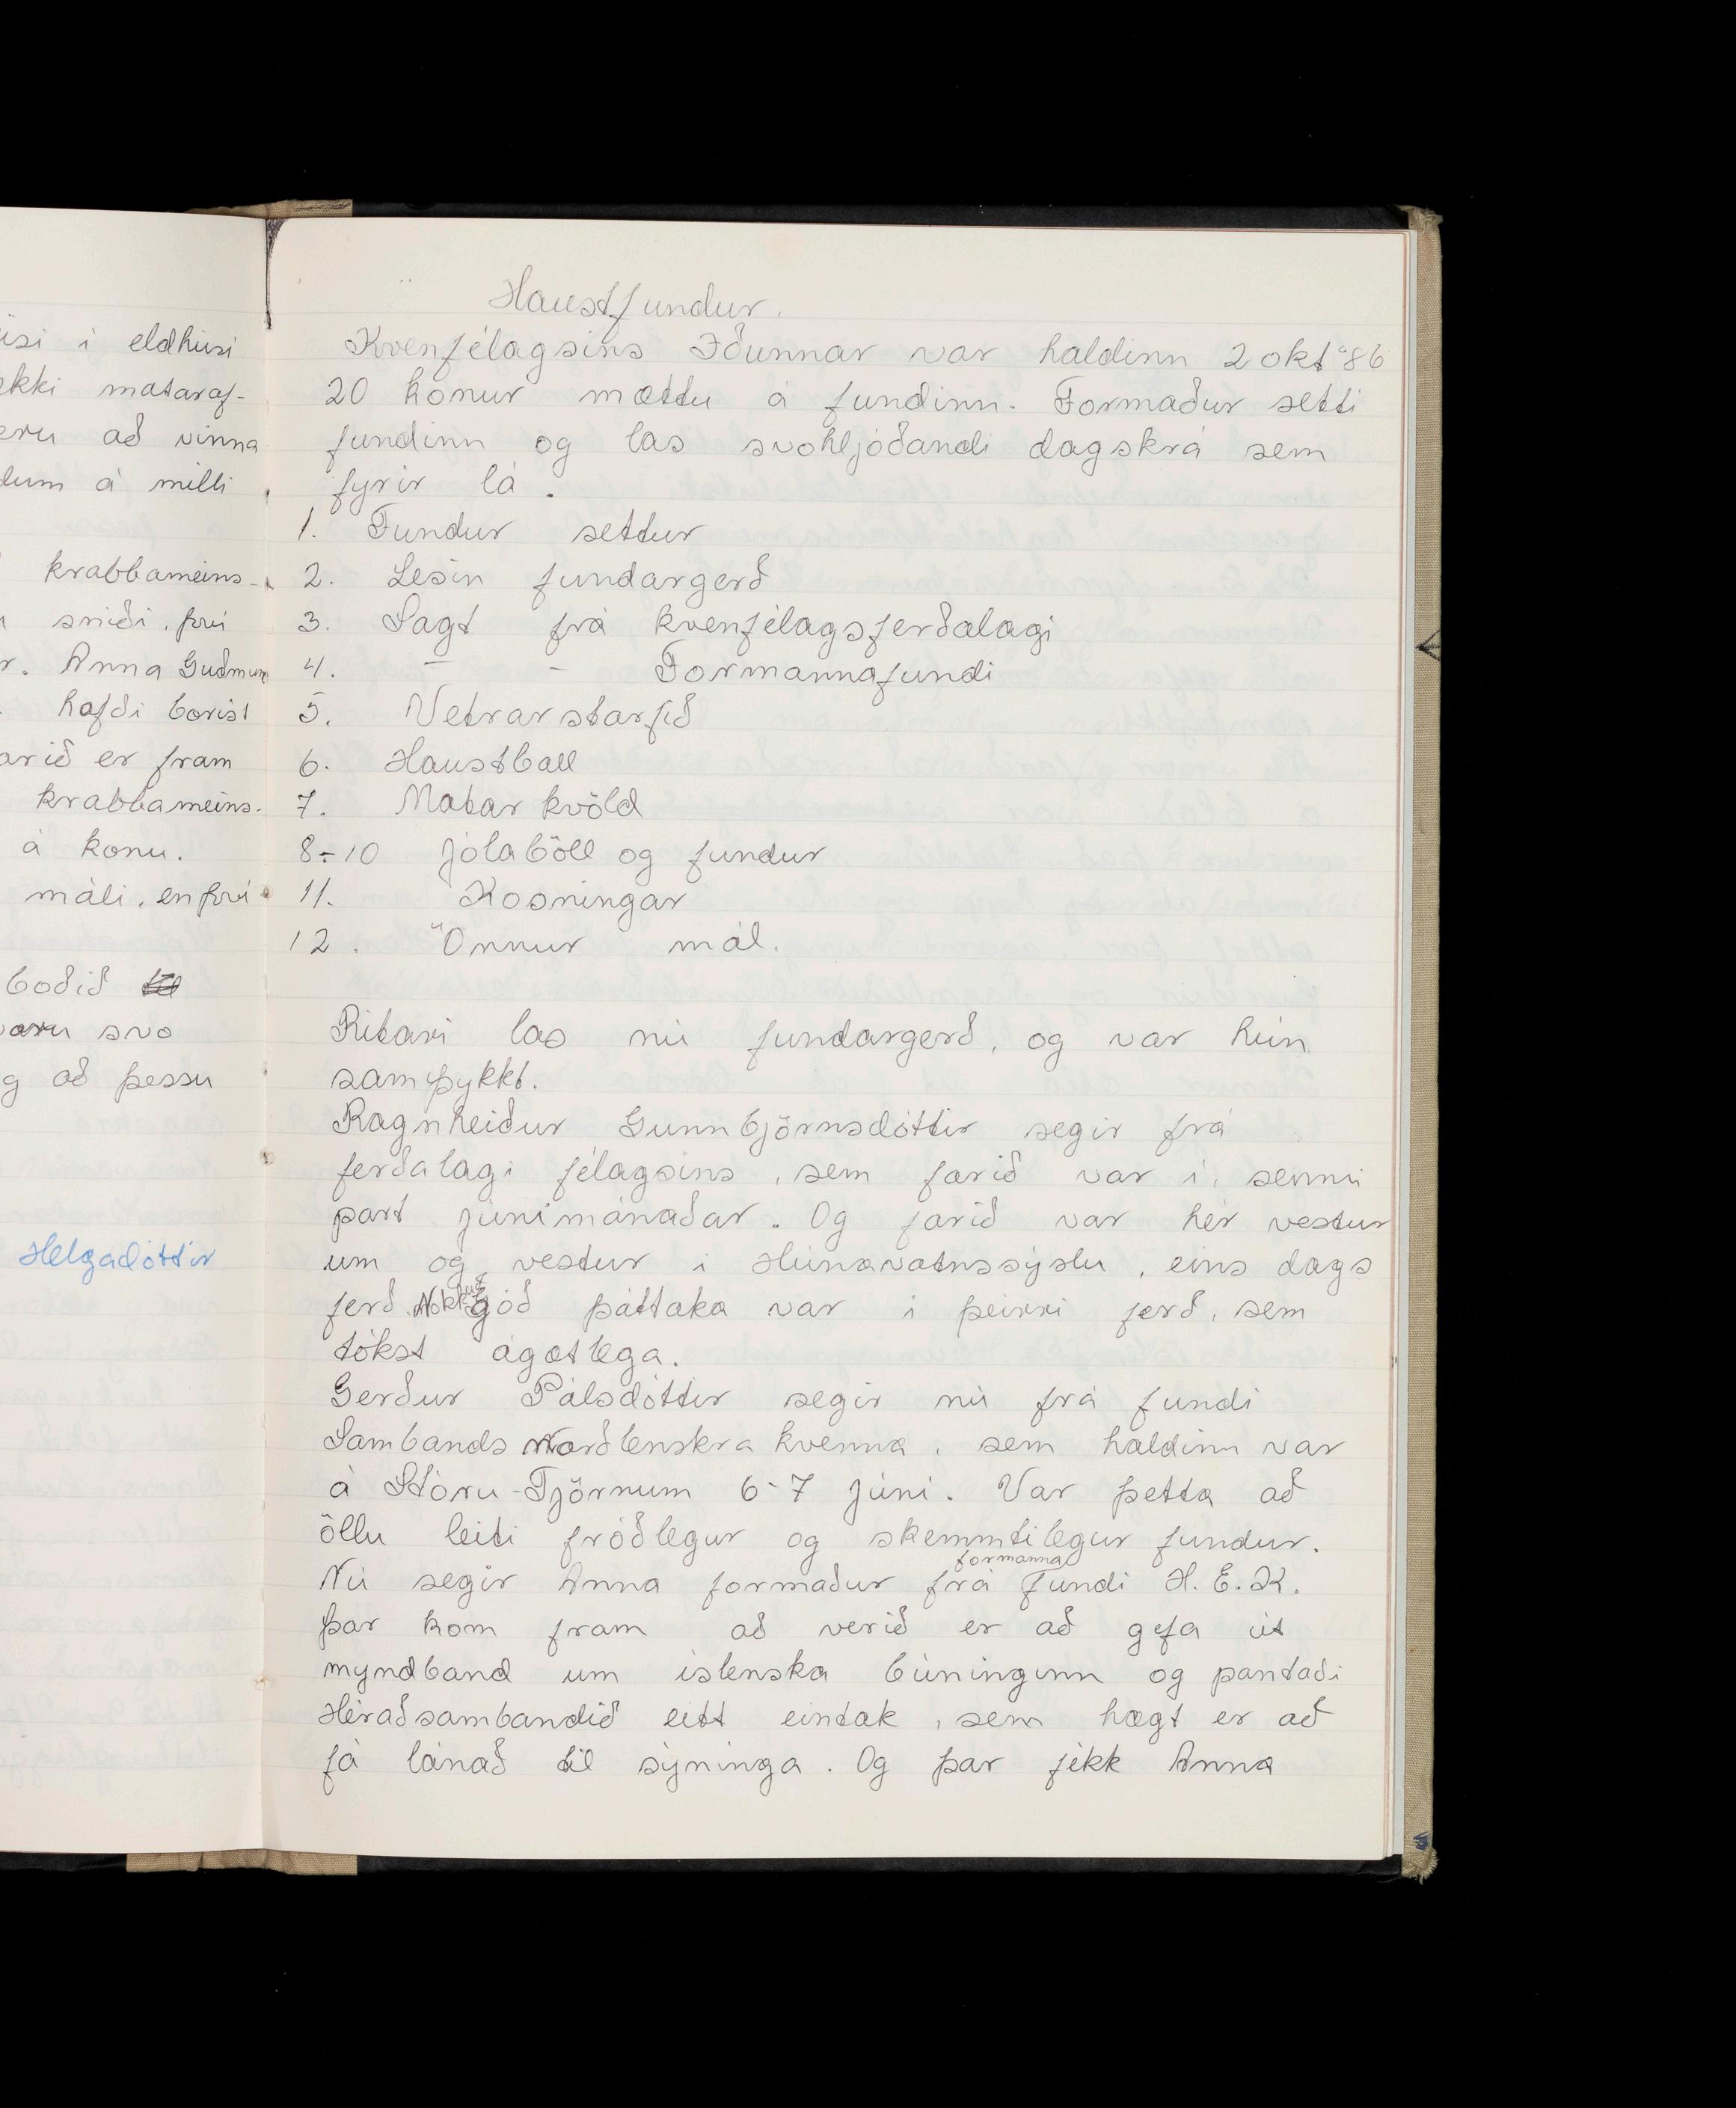 isi í eldhúsi
ekki mataraf-
eru að vinna
dum á milli
krabbameins-
sniði, því
r. Anna Guðmun
hafði borist
arið er fram
krabbameins-
á konu.
máli, en því
boðið
voru svo
g að þessu
Helgadóttir
Haustfundur.
Kvenfélagsins Iðunnar var haldinn 2 okt '86
20 konur mættu á fundinn. Formaður setti
fundinn og las svohljóðandi dagskrá sem
fyrir lá.
1. Fundur settur
2. Lesin fundargerð
3. Sagt frá kvenfélagsferðalagi
4. – – Formannafundi
5. Vetrarstarfið
6. Haustball
7. Matarkvöld
8-10 Jólaböll og fundur
11. Kosningar
12. Önnur mál.
Ritari las nú fundargerð, og var hún
samþykkt.
Ragnheiður Gunnbjörnsdóttir segir frá
ferðalagi félagsins, sem farið var í, seinni
part júnímánaðar. Og farið var hér vestur
um og vestur í Húnavatnssýslu, eins dags
ferð. Nokkuð góð þáttaka var í þeirri ferð, sem
tókst ágætlega.
Gerður Pálsdóttir segir nú frá fundi
Sambands Norðlenskra kvenna, sem haldinn var
á Stóru-Tjörnum 6-7 júní. Var þetta að
öllu leiti fróðlegur og skemmtilegur fundur.
Nú segir Anna formaður frá formanna fundi H.E.K.
Þar kom fram að verið er að gefa út
myndband um íslenska búninginn og pantaði
Héraðsambandið eitt eintak, sem hægt er að
fá lánað til sýninga. Og þar fékk Anna